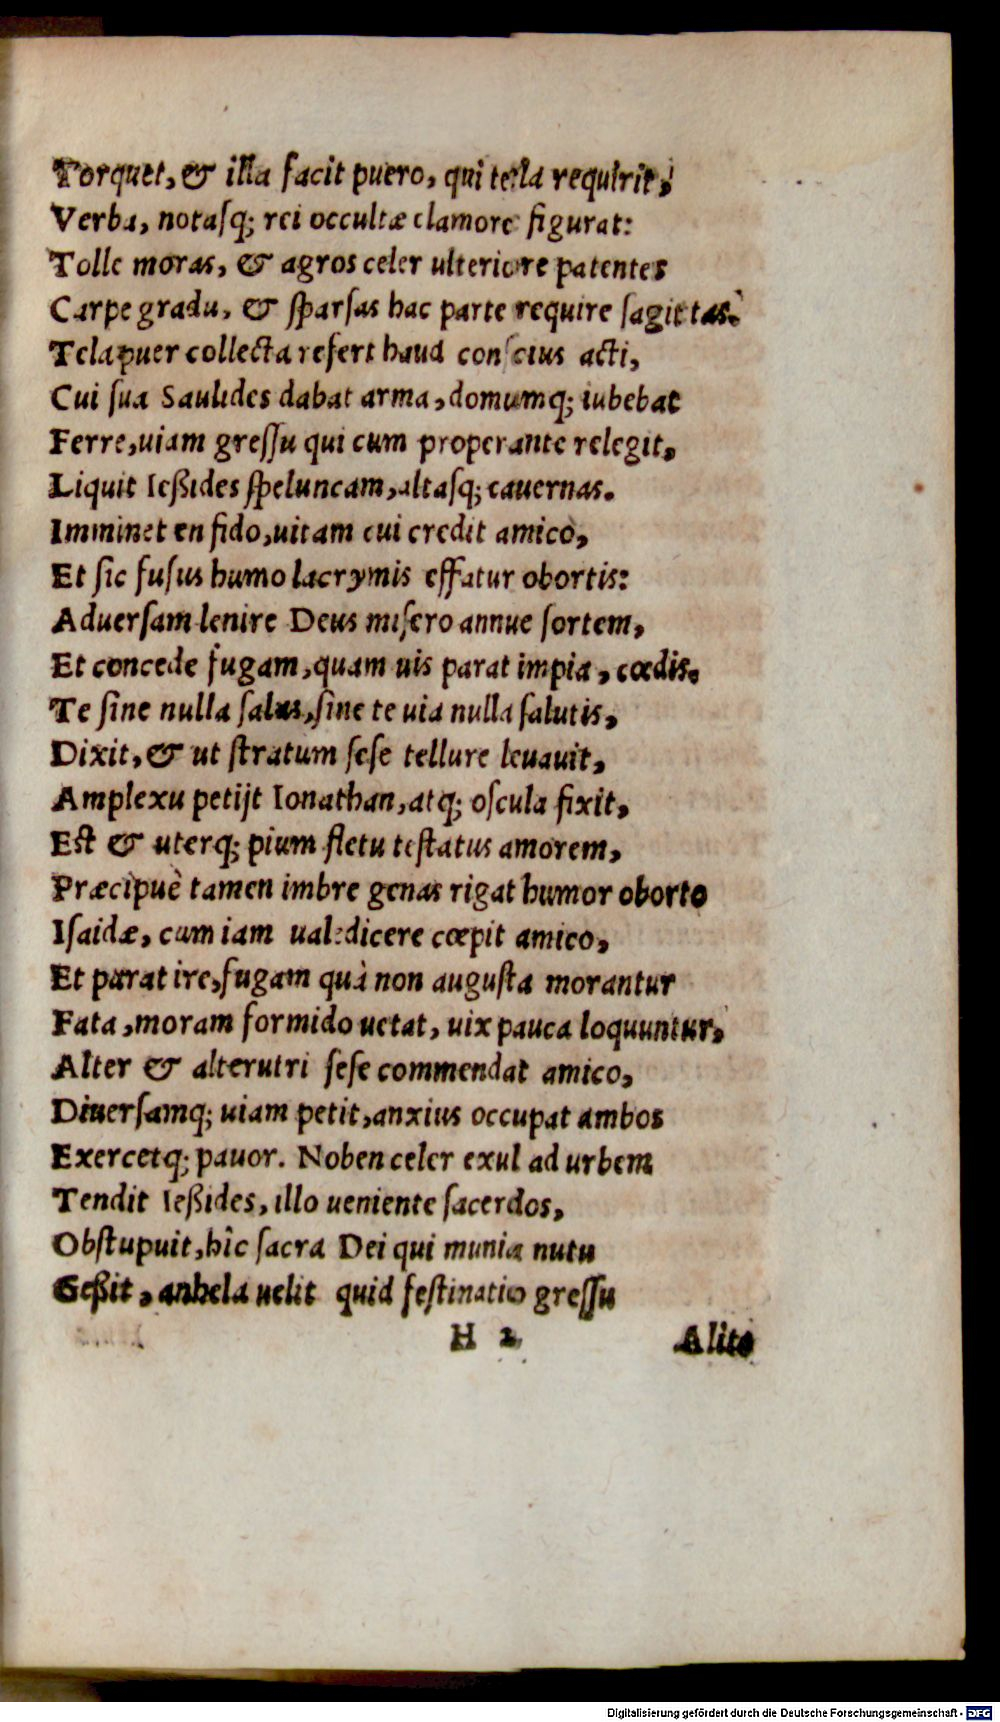 Torquet, & illa facit puero, qui tela requirit,
Verba, notasq; rei occultæ clamore figurat:
Tolle moras, & agros celer ulteriore patentes
Carpe gradu, & sparsas hac parte require sagittas.
Tela puer collecta refert haud conscius acti,
Cui sua Saulides dabat arma, domumq; iubebat
Ferre, uiam gressu qui cum properante relegit,
Liquit Ießides speluncam, altasq; cauernas.
Imminet en fido, uitam cui credit amico,
Et sic fusus humo lacrymis effatur obortis:
Aduersam lenire Deus misero annue sortem,
Et concede fugam, quam uis parat impia, cædis.
Te sine nulla salus, sine te uia nulla salutis,
Dixit, & ut stratum sese tellure leuauit,
Amplexu petijt Ionathan, atq; oscula fixit,
Est & uterq; pium fletu testatus amorem,
Præcipuè tamen imbre genas rigat humor oborto
Isaidæ, cum iam ualedicere cœpit amico,
Et parat ire, fugam quà non augusta morantur
Fata, moram formido uetat, uix pauca loquuntur,
Alter & alterutri sese commendat amico,
Diuersamq; uiam petit, anxius occupat ambos
Exercetq; pauor. Noben celer exul ad urbem
Tendit Ießides, illo ueniente sacerdos,
Obstupuit, hîc sacra Dei qui munia nutu
Geßit, anhela uelit quid festinatio gressu
H 2
Alite
Digitalisierung gefördert durch die Deutsche Forschungsgemeinschaft - DFG